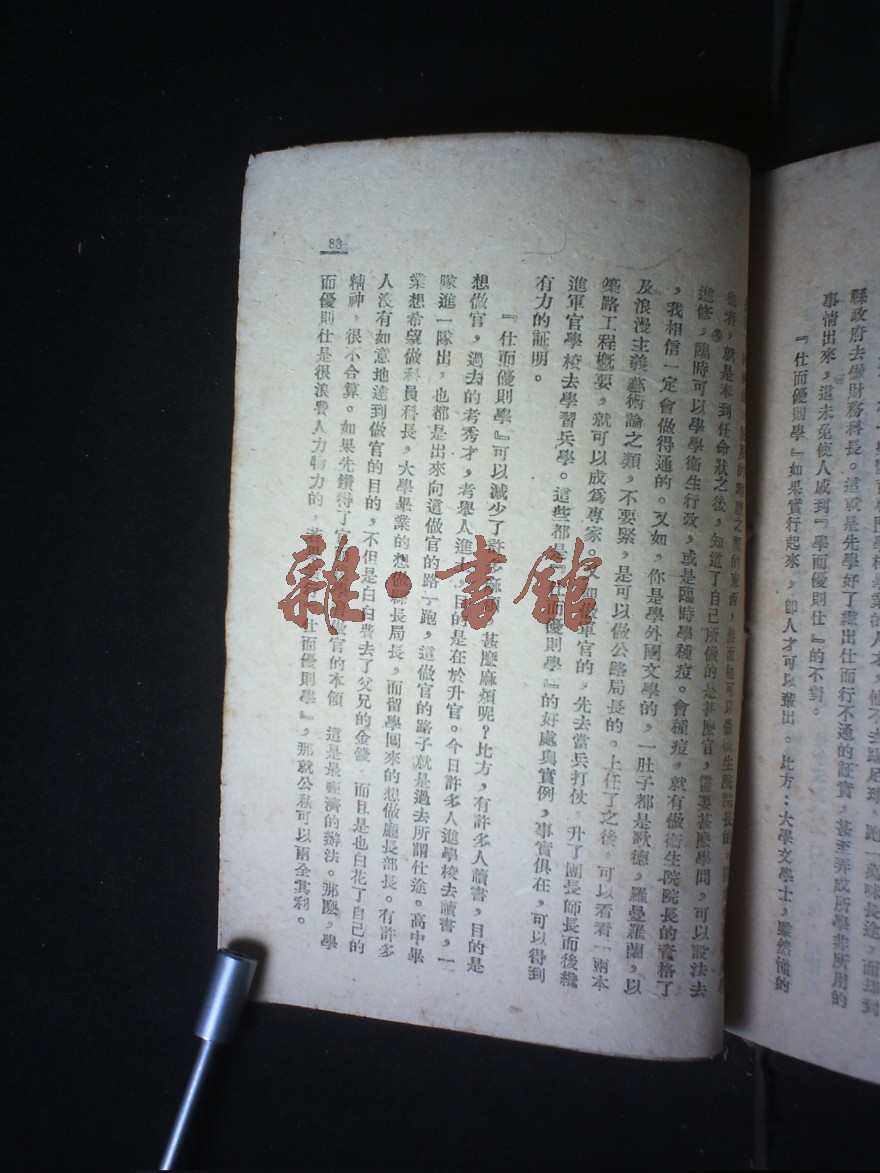 縣政府去做財務科長。這就是先學好了纔出仕而行不通的証實,甚至弄成所學非所用的
事情出來,這未免使人感到『學而優則仕』的不對。
『仕而優則學』如果實行起來,即人才可以輩出。比方:大學文學士,雖然懂的
也者,就是奉到任命狀之後,知道了自己所做的是甚麼官,需要甚麼學問,可以設法去
進修,臨時可以學學衛生行政,或是臨時學種痘。會種痘,就有做衛生院院長的資格了
,我相信一定會做得通的。又如,你是學外國文學的,一肚子都是歌德,羅曼羅蘭,以
及浪漫主義藝術論之類,不要緊,是可以做公路局長的。上任了之後,可以看看一兩本
築路工程概要,就可以成爲專家。又如做軍官的,先去當兵打仗,升了團長師長而後纔
進軍官學校去學習兵學。這些都是『仕而優則學』的好處與實例,事實俱在,可以得到
有力的証明。
『仕而優則學』可以減少了許多麻煩,甚麼麻煩呢?比方,有許多人讀書,目的是
想做官,過去的考秀才,考舉人進士,目的是在於升官。今日許多人進學校去讀書,一
隊進一隊出,也都是出來向這做官的路子跑,這做官的路子就是過去所謂仕途。高中畢
業想希望做科員科長,大學畢業的想做縣長局長,而留學回來的想做廳長部長。有許多
人沒有如意地達到做官的目的,不但是白白費去了父兄的金錢 而且是也白花了自己的
精神,很不合算。如果先鑽得了官 做官的本領 這是最經濟的辦法。那麼,學
而優則仕是很浪費人力物力的, 仕而優則學』,那就公私可以兩全其利。
83
雜·書館